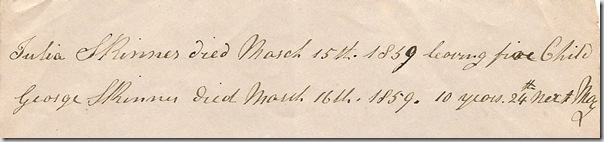 Julia Skinner died March 15th. 1859 leaving five Child
George Skinner Died March 16th. 1859. 10 years. 24th Next May